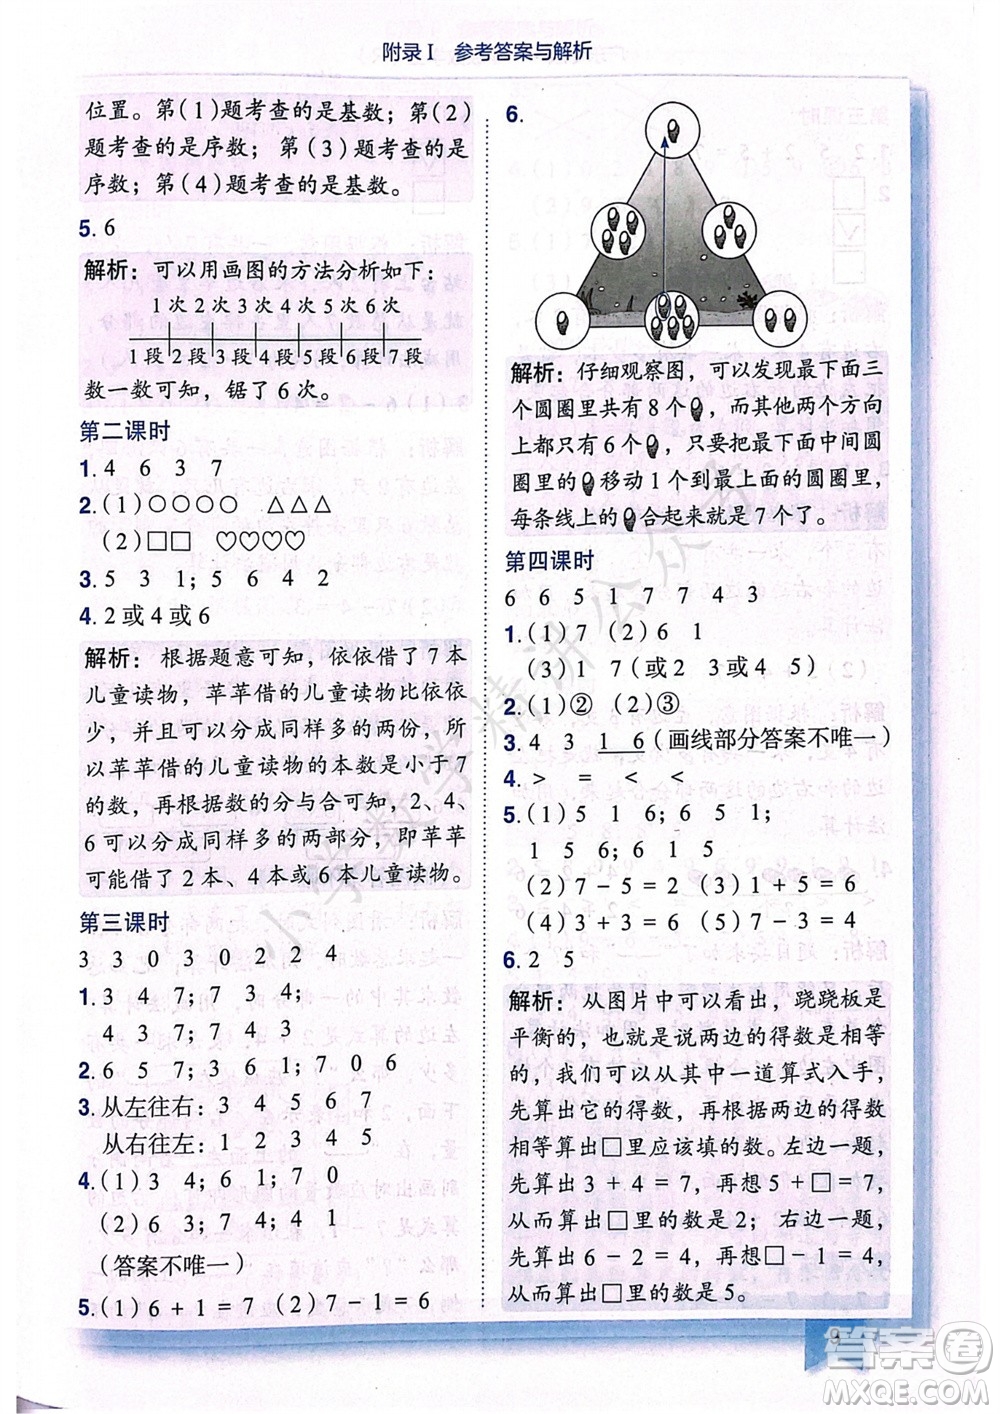 附录Ⅰ 参考答案与解析
位置。第(1)题考查的是基数;第(2)
题考查的是序数;第(3)题考查的是
序数;第(4)题考查的是基数。
5. 6
解析:可以用画图的方法分析如下:
1次2次3次4次5次6次
1段2段3段4段5段6段7段
数一数可知,锯了6次。
第二课时
1. 4 6 3 7
2. (1)○○○○ △△△
(2)□□ ♡♡♡♡♡
3. 5 3 1; 5 6 4 2
4. 2或4或6
解析:根据题意可知,依依借了7本
儿童读物,苹苹借的儿童读物比依依
少,并且可以分成同样多的两份,所
以苹苹借的儿童读物的本数是小于7
的数,再根据数的分与合可知,2、4、
6可以分成同样多的两部分,即苹苹
可能借了2本、4本或6本儿童读物。
第三课时
3 3 0 3 0 2 2 4
1. 3 4 7; 7 3 4;
4 3 7; 7 4 3
2. 6 5 7; 3 6 1; 7 0 6
3. 从左往右: 3 4 5 6 7
从右往左: 1 2 3 4 5
4. (1)3 4; 6 1; 7 0
(2)6 3; 7 4; 4 1
(答案不唯一)
5. (1)6+1=7 (2)7-1=6
6.
解析:仔细观察图,可以发现最下面三
个圆圈里共有8个,而其他两个方向
上都只有6个,只要把最下面中间圆
圈里的移动1个到最上面的圆圈里,
每条线上的合起来就是7个了。
第四课时
6 6 5 1 7 7 4 3
1. (1)7 (2)6 1
(3)1 7(或2 3或4 5)
2. (1)② (2)③
3. 4 3 1 6(画线部分答案不唯一)
4. > = < <
5. (1)5 1 6; 6 5 1;
1 5 6; 6 1 5
(2)7-5=2 (3)1+5=6
(4)3+3=6 (5)7-3=4
6. 2 5
解析:从图片中可以看出,跷跷板是
平衡的,也就是说两边的得数是相等
的,我们可以从其中一道算式入手,
先算出它的得数,再根据两边的得数
相等算出□里应该填的数。左边一题,
先算出3+4=7,再想5+□=7,
从而算出□里的数是2;右边一题,
先算出6-2=4,再想□-1=4,
从而算出□里的数是5。
9
小学数学精讲公众号
答案圈
MXQE.COM